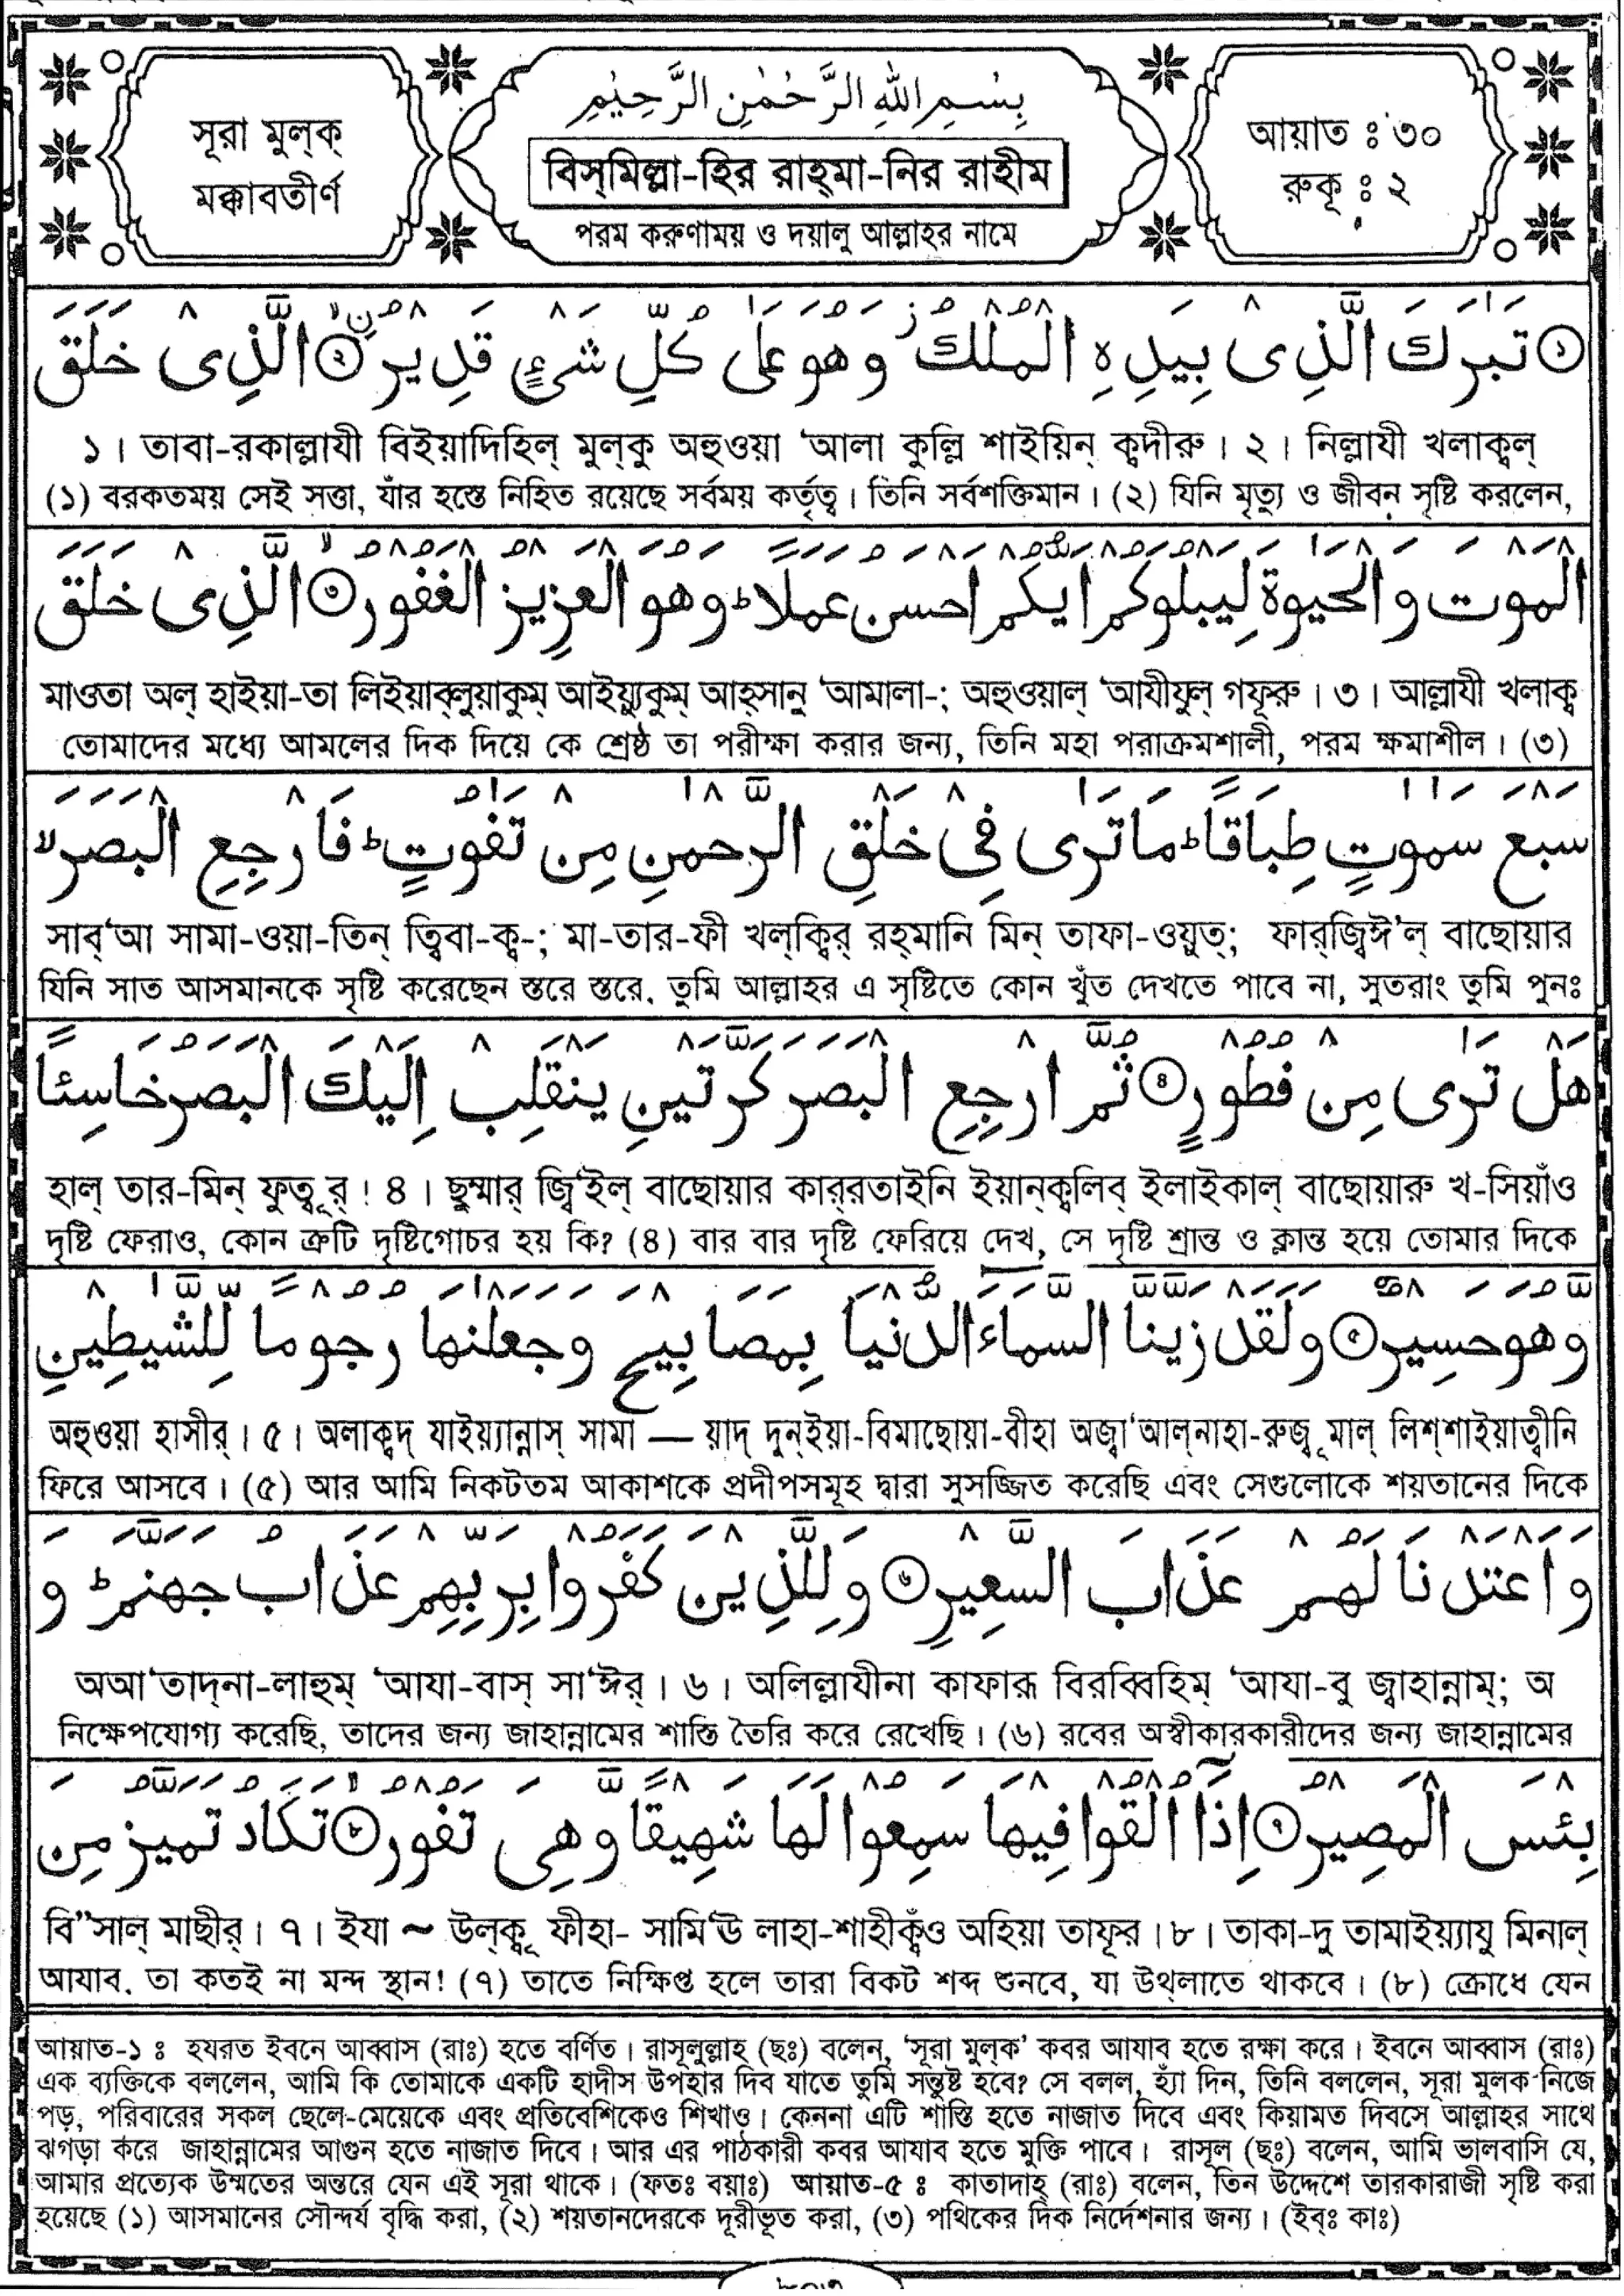 সূরা মুল্‌ক্
মক্কাবতীর্ণ
بِسْمِ اللهِ الرَّحْمٰنِ الرَّحِيْمِ
বিস্‌মিল্লা-হির রাহ্‌মা-নির রাহীম
পরম করুণাময় ও দয়ালু আল্লাহর নামে
আয়াত : ৩০
রুকূ : ২
① تَبٰرَكَ الَّذِىْ بِيَدِهِ الْمُلْكُ ز وَهُوَ عَلٰى كُلِّ شَىْءٍ قَدِيْرُ ۙ ② نِ الَّذِىْ خَلَقَ
১। তাবা-রকাল্লাযী বিইয়াদিহিল্ মুল্‌কু অহুওয়া 'আলা কুল্লি শাইয়িন্ ক্বদীরু। ২। নিল্লাযী খলাক্বল্
(১) বরকতময় সেই সত্তা, যাঁর হস্তে নিহিত রয়েছে সর্বময় কর্তৃত্ব। তিনি সর্বশক্তিমান। (২) যিনি মৃত্যু ও জীবন সৃষ্টি করলেন,
الْمَوْتَ وَالْحَيٰوةَ لِيَبْلُوَكُمْ اَيُّكُمْ اَحْسَنُ عَمَلًا ؕ وَهُوَ الْعَزِيْزُ الْغَفُوْرُ ۙ ③ الَّذِىْ خَلَقَ
মাওতা অল্ হাইয়া-তা লিইয়াব্‌লুয়াকুম্ আইয়্যুকুম্ আহ্‌সানু 'আমালা-; অহুওয়াল্ 'আযীযুল্ গফূরু। ৩। আল্লাযী খলাক্ব
তোমাদের মধ্যে আমলের দিক দিয়ে কে শ্রেষ্ঠ তা পরীক্ষা করার জন্য, তিনি মহা পরাক্রমশালী, পরম ক্ষমাশীল। (৩)
سَبْعَ سَمٰوٰتٍ طِبَاقًا ؕ مَا تَرٰى فِىْ خَلْقِ الرَّحْمٰنِ مِنْ تَفٰوُتٍ ؕ فَارْجِعِ الْبَصَرَ ۙ
সাব্'আ সামা-ওয়া-তিন্ ত্বিবা-ক্ব-; মা-তার-ফী খল্‌ক্বির্ রহ্‌মানি মিন্ তাফা-ওয়ুত্; ফার্‌জ্বিঈ'ল্ বাছোয়ার
যিনি সাত আসমানকে সৃষ্টি করেছেন স্তরে স্তরে. তুমি আল্লাহর এ সৃষ্টিতে কোন খুঁত দেখতে পাবে না, সুতরাং তুমি পুনঃ
هَلْ تَرٰى مِنْ فُطُوْرٍ ④ ثُمَّ ارْجِعِ الْبَصَرَ كَرَّتَيْنِ يَنْقَلِبْ اِلَيْكَ الْبَصَرُ خَاسِئًا
হাল্ তার-মিন্ ফুত্বূর্! ৪। ছুম্মার্ জ্বি'ইল্ বাছোয়ার কার্‌রতাইনি ইয়ান্‌ক্বলিব্ ইলাইকাল্ বাছোয়ারু খ-সিয়াঁও
দৃষ্টি ফেরাও, কোন ত্রুটি দৃষ্টিগোচর হয় কি? (৪) বার বার দৃষ্টি ফেরিয়ে দেখ, সে দৃষ্টি শ্রান্ত ও ক্লান্ত হয়ে তোমার দিকে
وَّهُوَ حَسِيْرٌ ⑤ وَلَقَدْ زَيَّنَّا السَّمَآءَ الدُّنْيَا بِمَصَابِيْحَ وَجَعَلْنٰهَا رُجُوْمًا لِّلشَّيٰطِيْنِ
অহুওয়া হাসীর্। ৫। অলাক্বদ্ যাইয়্যান্নাস্ সামা — য়াদ্ দুন্‌ইয়া-বিমাছোয়া-বীহা অজ্বা'আল্‌নাহা-রুজ্বূমাল্ লিশ্‌শাইয়াত্বীনি
ফিরে আসবে। (৫) আর আমি নিকটতম আকাশকে প্রদীপসমূহ দ্বারা সুসজ্জিত করেছি এবং সেগুলোকে শয়তানের দিকে
وَاَعْتَدْنَا لَهُمْ عَذَابَ السَّعِيْرِ ⑥ وَلِلَّذِيْنَ كَفَرُوْا بِرَبِّهِمْ عَذَابُ جَهَنَّمَ ؕ وَ
অআ'তাদ্‌না-লাহুম্ 'আযা-বাস্ সা'ঈর্। ৬। অলিল্লাযীনা কাফারূ বিরব্বিহিম্ 'আযা-বু জ্বাহান্নাম্; অ
নিক্ষেপযোগ্য করেছি, তাদের জন্য জাহান্নামের শাস্তি তৈরি করে রেখেছি। (৬) রবের অস্বীকারকারীদের জন্য জাহান্নামের
بِئْسَ الْمَصِيْرُ ⑦ اِذَآ اُلْقُوْا فِيْهَا سَمِعُوْا لَهَا شَهِيْقًا وَّهِىَ تَفُوْرُ ۙ ⑧ تَكَادُ تَمَيَّزُ مِنَ
বি"সাল্ মাছীর্। ৭। ইযা ~ উল্‌ক্বূ ফীহা- সামি'ঊ লাহা-শাহীক্বঁও অহিয়া তাফূর। ৮। তাকা-দু তামাইয়্যাযু মিনাল্
আযাব. তা কতই না মন্দ স্থান! (৭) তাতে নিক্ষিপ্ত হলে তারা বিকট শব্দ শুনবে, যা উথ্‌লাতে থাকবে। (৮) ক্রোধে যেন
আয়াত-১ : হযরত ইবনে আব্বাস (রাঃ) হতে বর্ণিত। রাসূলুল্লাহ (ছঃ) বলেন, 'সূরা মুল্‌ক' কবর আযাব হতে রক্ষা করে। ইবনে আব্বাস (রাঃ)
এক ব্যক্তিকে বললেন, আমি কি তোমাকে একটি হাদীস উপহার দিব যাতে তুমি সন্তুষ্ট হবে? সে বলল, হ্যাঁ দিন, তিনি বললেন, সূরা মুলক নিজে
পড়, পরিবারের সকল ছেলে-মেয়েকে এবং প্রতিবেশিকেও শিখাও। কেননা এটি শাস্তি হতে নাজাত দিবে এবং কিয়ামত দিবসে আল্লাহর সাথে
ঝগড়া করে জাহান্নামের আগুন হতে নাজাত দিবে। আর এর পাঠকারী কবর আযাব হতে মুক্তি পাবে। রাসূল (ছঃ) বলেন, আমি ভালবাসি যে,
আমার প্রত্যেক উম্মতের অন্তরে যেন এই সূরা থাকে। (ফতঃ বয়াঃ) আয়াত-৫ : কাতাদাহ্ (রাঃ) বলেন, তিন উদ্দেশে তারকারাজী সৃষ্টি করা
হয়েছে (১) আসমানের সৌন্দর্য বৃদ্ধি করা, (২) শয়তানদেরকে দূরীভূত করা, (৩) পথিকের দিক নির্দেশনার জন্য। (ইব্ঃ কাঃ)